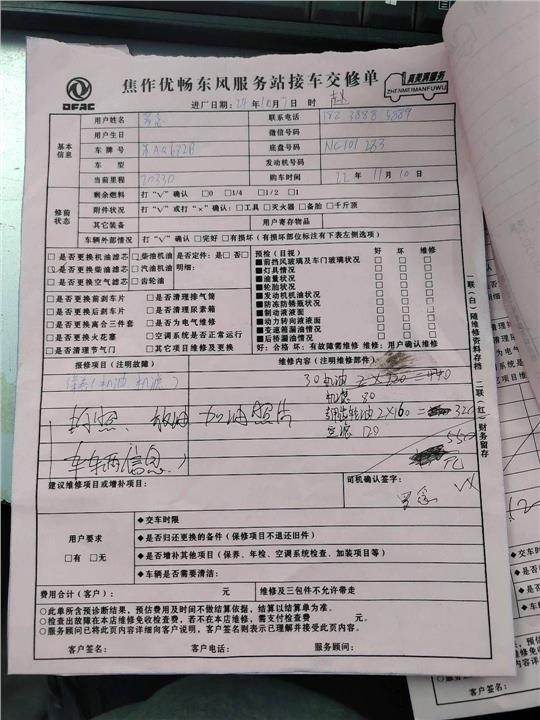 DFAC
焦作优畅东风服务站接车交修单
真美满服务
ZHENMEIMANFUWU
进厂日期：24年10月7日 时
基本信息
用户姓名 联系电话
用户生日 微信号码
车牌号 底盘号码 NC101283
车型 发动机号码
当前里程 20330 购车时间 22 11 10
修前状态
剩余燃料 打“√”确认 □0 □1/4 □1/2 □1
附件状况 打“√”或打“×”确认：□工具 □灭火器 □备胎 □千斤顶
其它装备 用户寄存物品
车辆外部情况 打“√”确认 □完好 □有损坏（有损坏部位标注有下表左侧选项）
□是否更换机油滤芯 □柴油机油 是否定件：是□ 否□
□是否更换柴油滤芯 □汽油机油 明细：
□是否更换空气滤芯 □齿轮油
□是否更换前刹车片 □是否清理排气筒
□是否更换后刹车片 □是否清理尿素箱
□是否更换离合三件套 □是否为电气维修
□是否更换火花塞 □空调系统是否正常运行
□是否清理节气门 □其它项目维修及更换
预检（目视） 好 坏 维修
■前挡风玻璃及车门玻璃状况
■灯具情况
■油量状况
■轮胎状况
■发动机机油状况
■防冻防锈瓶状况
■制动液液面
■动力转向液液面
■变速箱漏油情况
■后桥漏油情况
好：合格 坏：有故障需维修 维修：用户确认维修
报修项目（注明故障） 维修内容（注明维修部件）
保养（机油，机滤）
拍照、 加油照片
车车辆信息）
30机油
机滤 80
2X160 = 320
空滤 120
550元
建议维修项目或增补项目： 司机确认签字：
用户要求
□有 □无
◆交车时限
◆是否归还更换的备件（保修项目不退还旧件）
◆是否增补其他项目（保养、年检、空调系统检查、加装项目等）
◆车辆是否需要清洁：
费用合计（客户）： 元 维修及三包件不允许带走
○此单所含预诊断结果，预估费用及时间不做结算依据，结算以结算单为准。
○检查出故障在本店维修免收检查费，若不在本店维修，需支付检查费 元。
○服务顾问已将此页内容详细向客户说明，客户签名则表示已理解并接受此页内容。
客户签名： 客户电话： 服务顾问：
一联（白）随维修资料存档 二联（红）财务留存